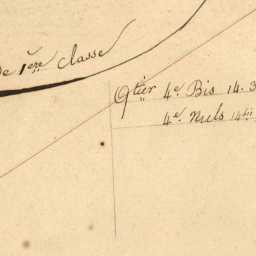 de 1ere classe
Qtier 4e. Bis 14.3
4e. Nuls 14